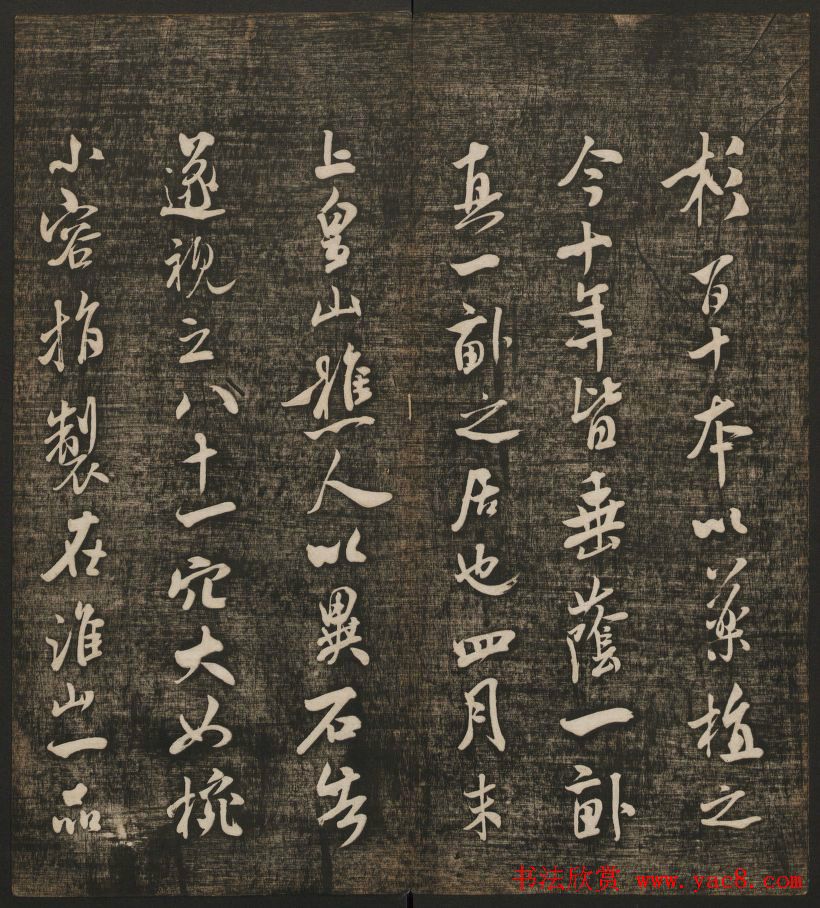 杉百十本以藥植之
今十年皆垂蔭一畝
真一畝之居也四月末
上皇山樵人以異石告
遂視之八十一穴大如椀
小容指製在淮山一品
书法欣赏 www.yac8.com